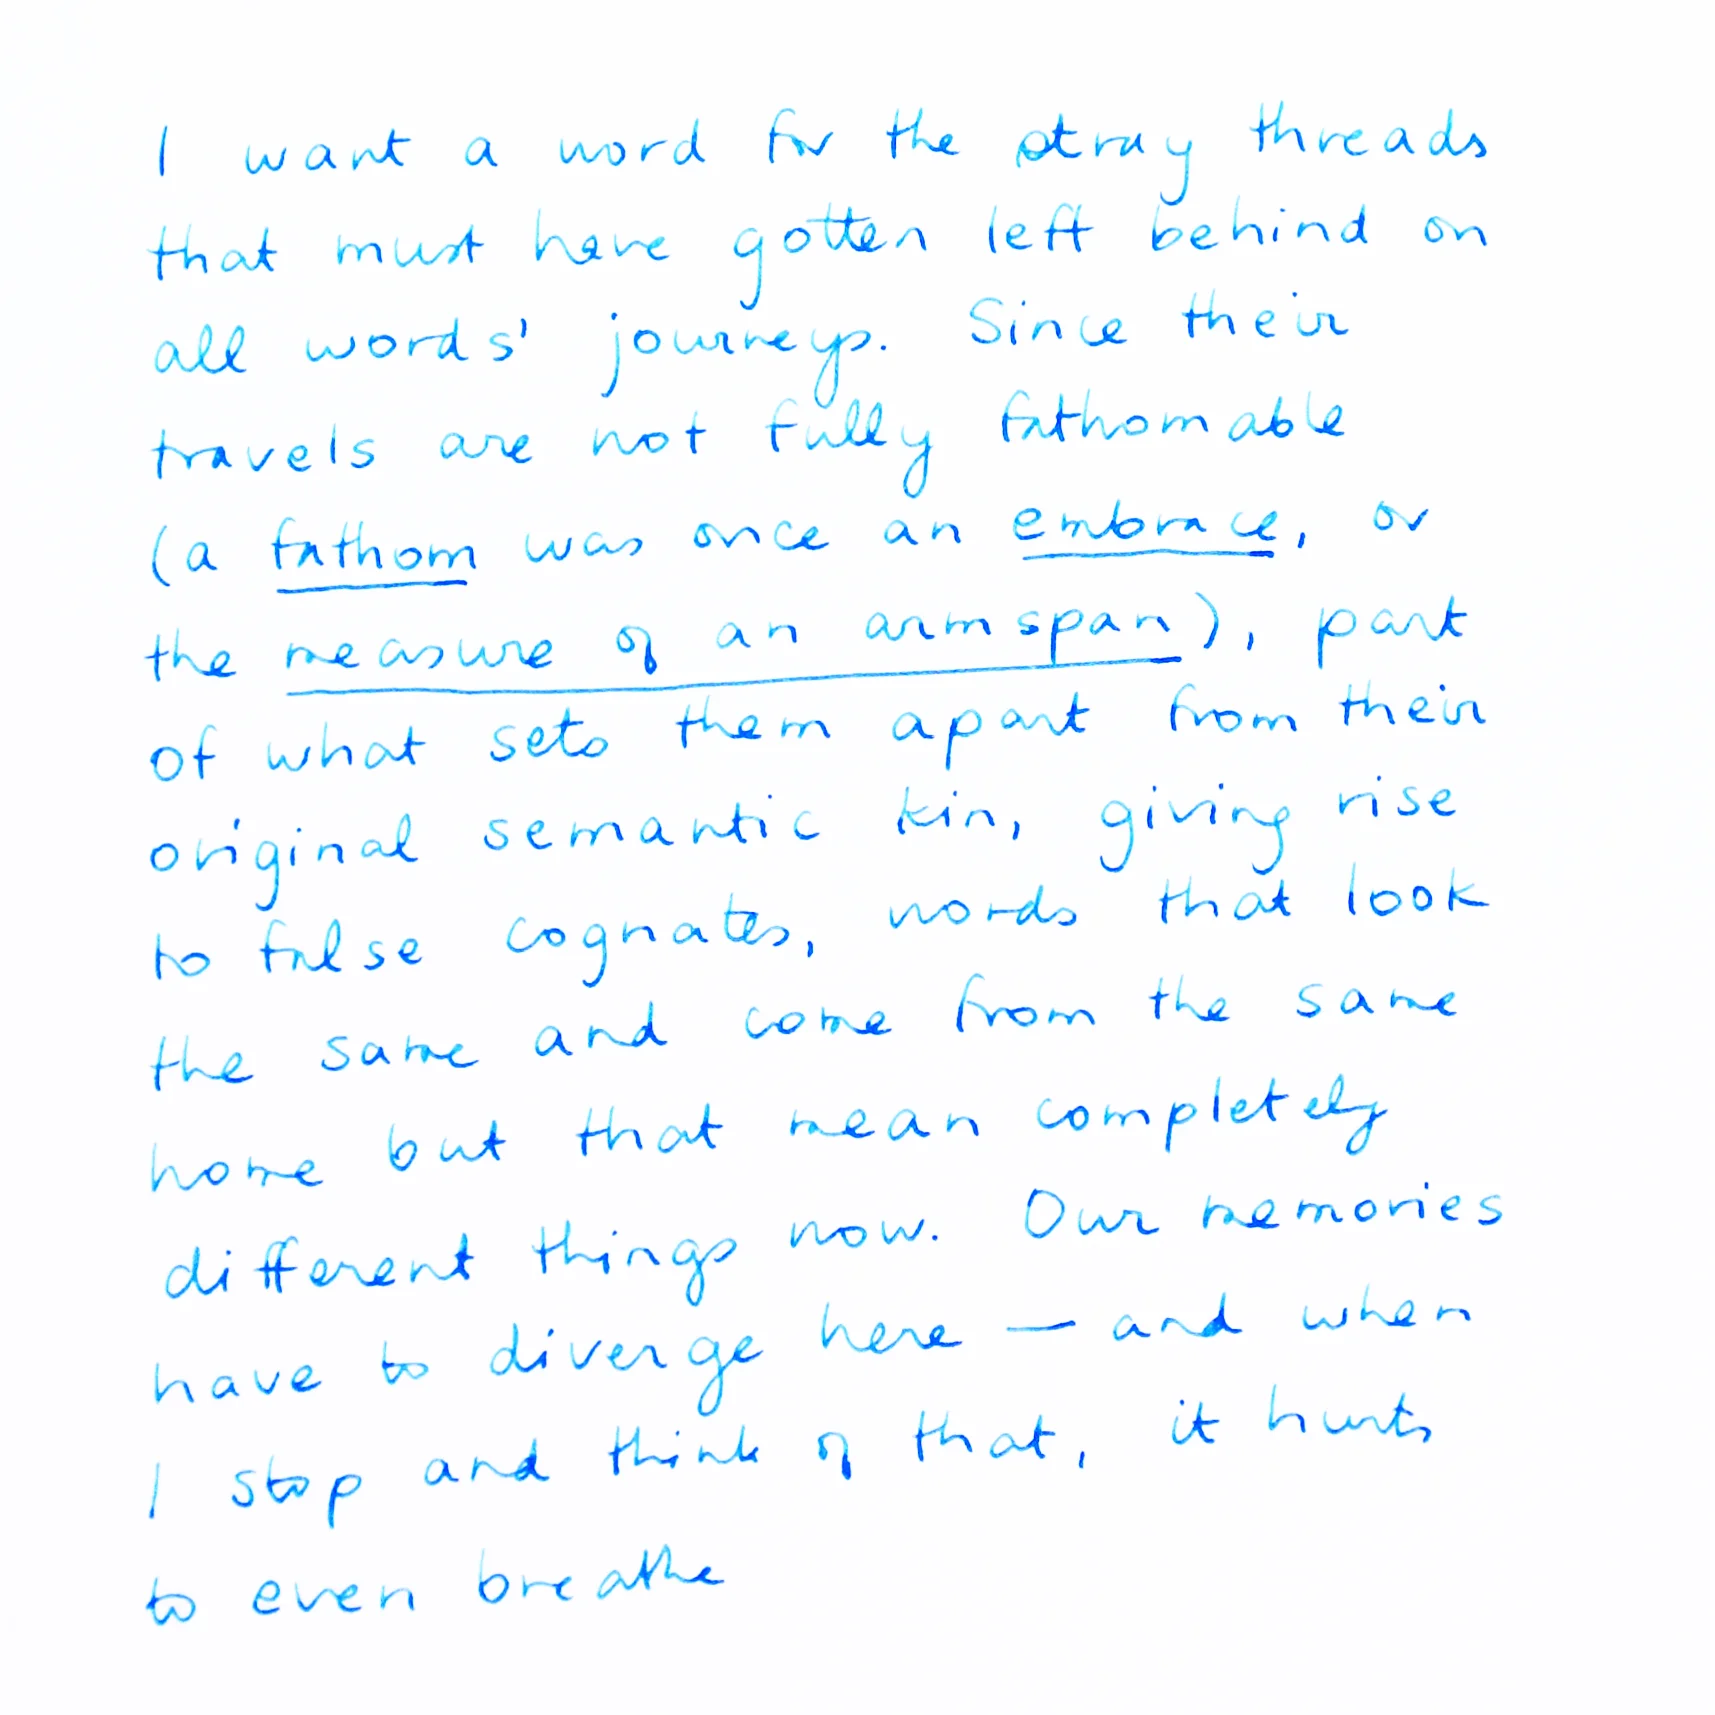 I want a word for the stray threads
that must have gotten left behind on
all words' journeys. Since their
travels are not fully fathomable
(a fathom was once an embrace, or
the measure of an armspan), part
of what sets them apart from their
original semantic kin, giving rise
to false cognates, words that look
the same and come from the same
home but that mean completely
different things now. Our memories
have to diverge here — and when
I stop and think of that, it hurts
to even breathe